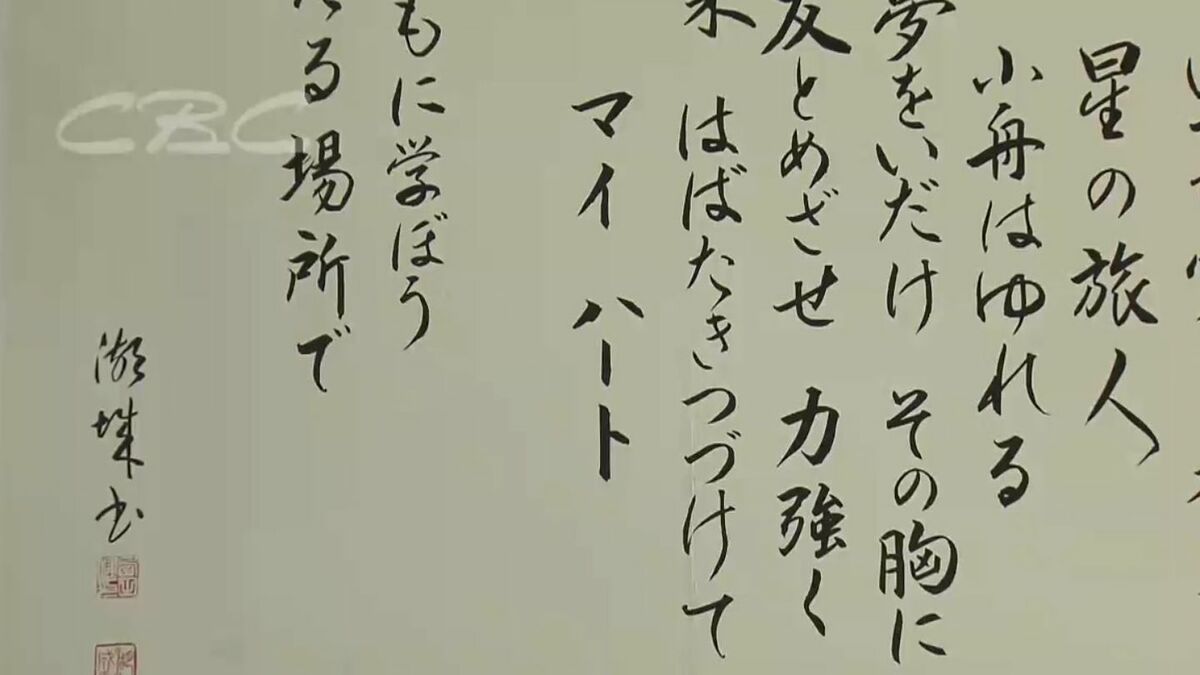 星の旅人
小舟はゆれる
夢をいだけ その胸に
友とめざせ 力強く
はばたきつづけて
マイ ハート
もに学ぼう
る場所で
書
CBC